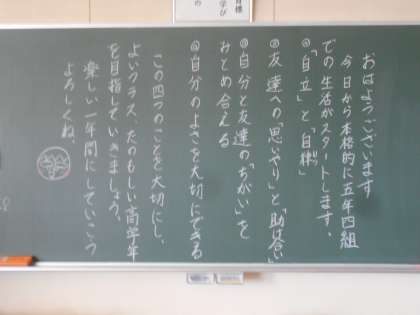 おはようございます
今日から本格的に五年四組
での生活がスタートします。
①「自立」と「自律」
②友達への「思いやり」と「助け合い」
③自分と友達の「ちがい」を
みとめ合える
④自分のよさを大切にできる
この四つのことを大切にし、
よいクラス、たのもしい高学年
を目指していきましょう。
楽しい一年間にしていこう
よろしくね。